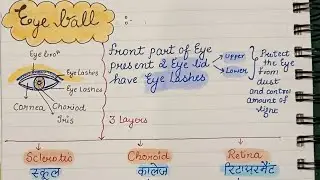 Eye ball :-
Eye brow
Eye Lashes
Eye Lashes
Cornea
Choroid
Iris
front part of Eye
present 2 Eye lid
have Eye Lashes
Upper
Lower
Protect
the Eye
from
dust
and control
amount of
light
3 Layers
Sclerotic
Choroid
Retina
स्कूल
कालेज
रिटायरमेंट